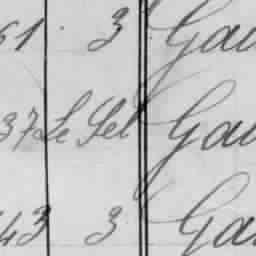 61. 3 Gau
37 Le Sel Gau
43 3 Gau